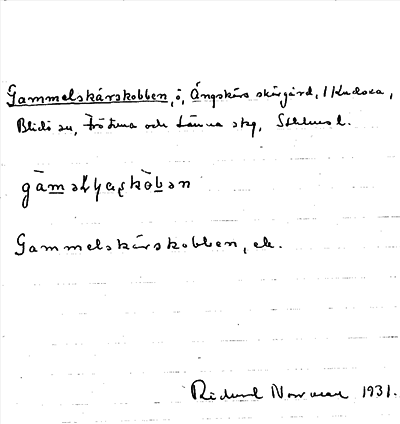 Gammelskärskobben, ö, Ängskärs skärgård, 1 Kudoxa,
Blidö sn, Frötuna och Länna skg, Sthlms l.
gàməlʂkæʂkòbən
Gammelskärskobben, ek.
Rickard Norrman 1931.